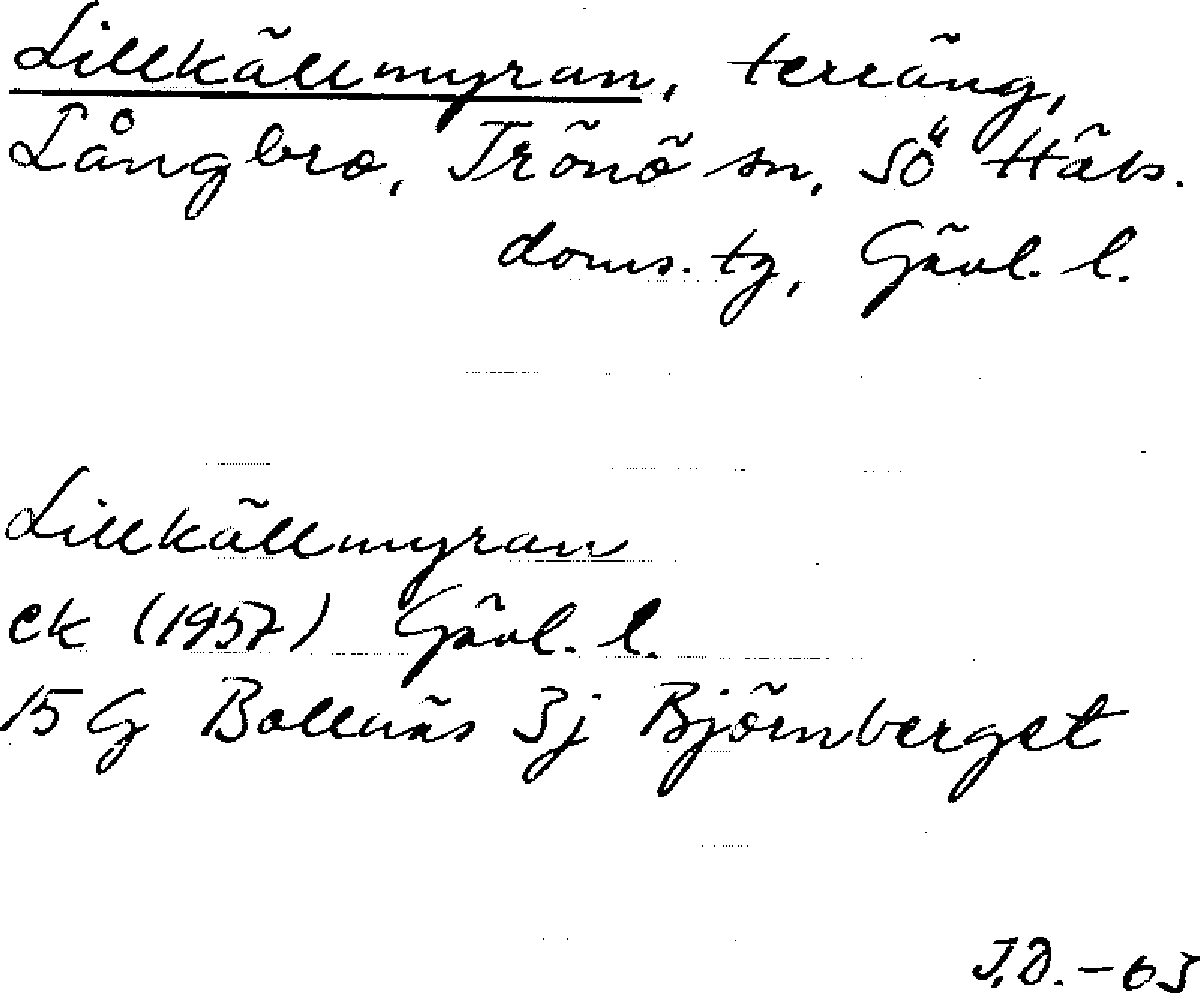 Lillkällmyran, terräng,
Långbro, Trönö sn, SÖ Häls.
doms. tg, Gävl. l.
Lillkällmyran
ek (1957) Gävl. l.
15 G Bollnäs 3j Björnberget
J.Ö.-63